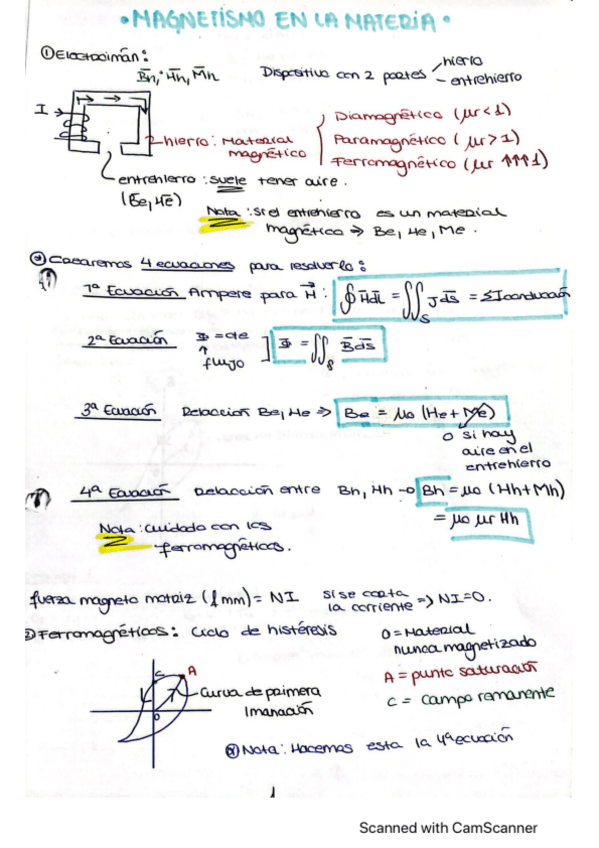 • MAGNETISMO EN LA MATERIA •
① Electroimán:
B̄h, H̄h, M̄h
Dispositivo con 2 partes
hierro
entrehierro
I
hierro: Material magnético
Diamagnético (μr < 1)
Paramagnético (μr > 1)
Ferromagnético (μr ↑↑↑ 1)
entrehierro: suele tener aire.
(B̄e, H̄e)
Nota: Si el entrehierro es un material
magnético ⇒ Be, He, Me.
4 ecuaciones para resolverlo:
1ª Ecuación Ampere para H⃗: ∮ H̄dL̄ = ∬s J̄ds̄ = ΣIconducción
2ª Ecuación Φ = cte ] Φ = ∬s B̄ds̄
↑
flujo
3ª Ecuación Relaccion Be, He ⇒ Be = μo (He + Me)
0 si hay
aire en el
entrehierro
4ª Ecuación Relacción entre Bh, Hh → Bh = μo (Hh + Mh)
= μo μr Hh
Nota: cuidado con los
ferromagnéticos.
fuerza magneto motriz (fmm) = NI si se corta
la corriente ⇒ NI = 0.
② Ferromagnéticos: Ciclo de histéresis
0 = Material
nunca magnetizado
A = punto saturación
C = campo remanente
A
C
0
Curva de primera
Imanación
Nota: Hacemos esta la 4ª ecuación
1
Scanned with CamScanner